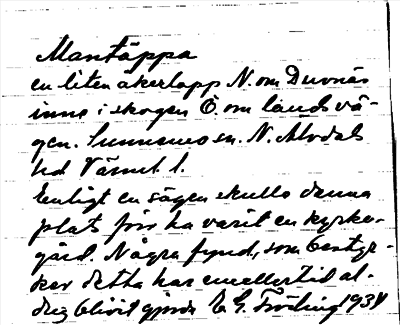 Mantäppa
en liten åkerlapp N. om Duvnäs
inne i skogen Ö. om landsvä-
gen. Sunnemo sn. N. Älvdals
hd Värml. l.
Enligt en sägen skulle denna
plats förr ha varit en kyrko-
gård. Några fynd, som bestyr-
ker detta har emellertid al-
drig blivit gjorda E. G. Fröling 1934